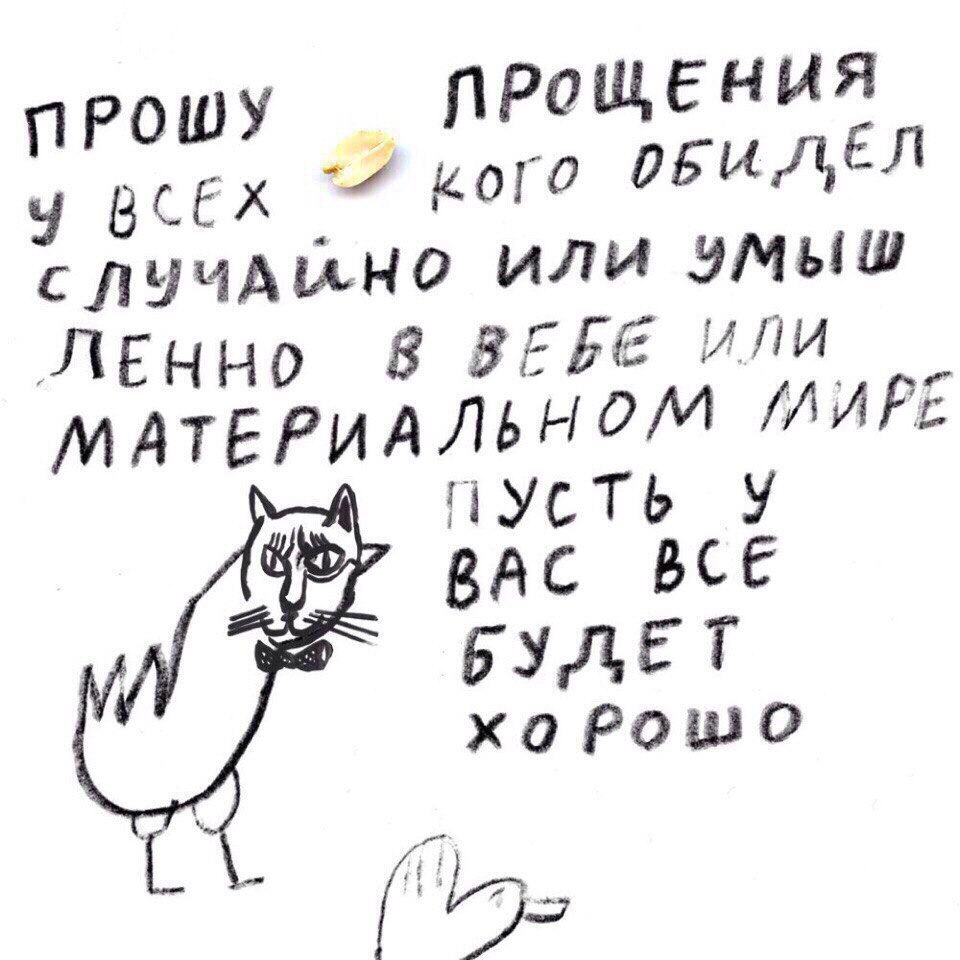 ПРОШУ ПРОЩЕНИЯ
У ВСЕХ КОГО ОБИДЕЛ
СЛУЧАЙНО ИЛИ УМЫШ
ЛЕННО В ВЕБЕ ИЛИ
МАТЕРИАЛЬНОМ МИРЕ
ПУСТЬ У
ВАС ВСЕ
БУДЕТ
ХОРОШО